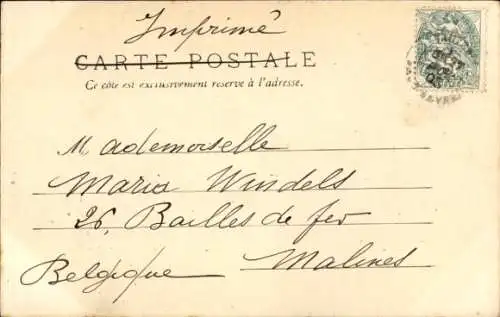 Imprimé
CARTE POSTALE
Ce côté est exclusivement réservé à l'adresse.
Mademoiselle
Maria Windels
26, Bailles de fer
Malines
Belgique